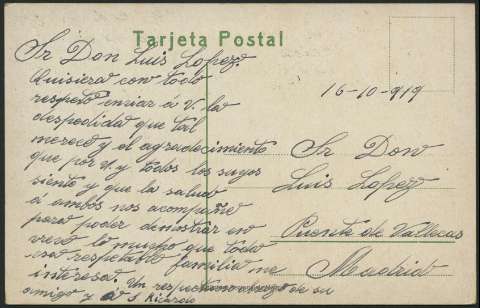 Tarjeta Postal
Sr Don Luis Lopez.
Quisiera con todo
respeto enviar á V. la
despedida que tal
merece y el agradecimiento
que por V. y todos los suyos
siente y que la salud
á ambos nos acompañe
para poder demostrar en
vero lo mucho que toda
esa respetable familia me
interesa. Un respetuoso abrazo de su
amigo y S.
16-10-919
Sr Don
Luis Lopez
Puente de Vallecas
Madrid